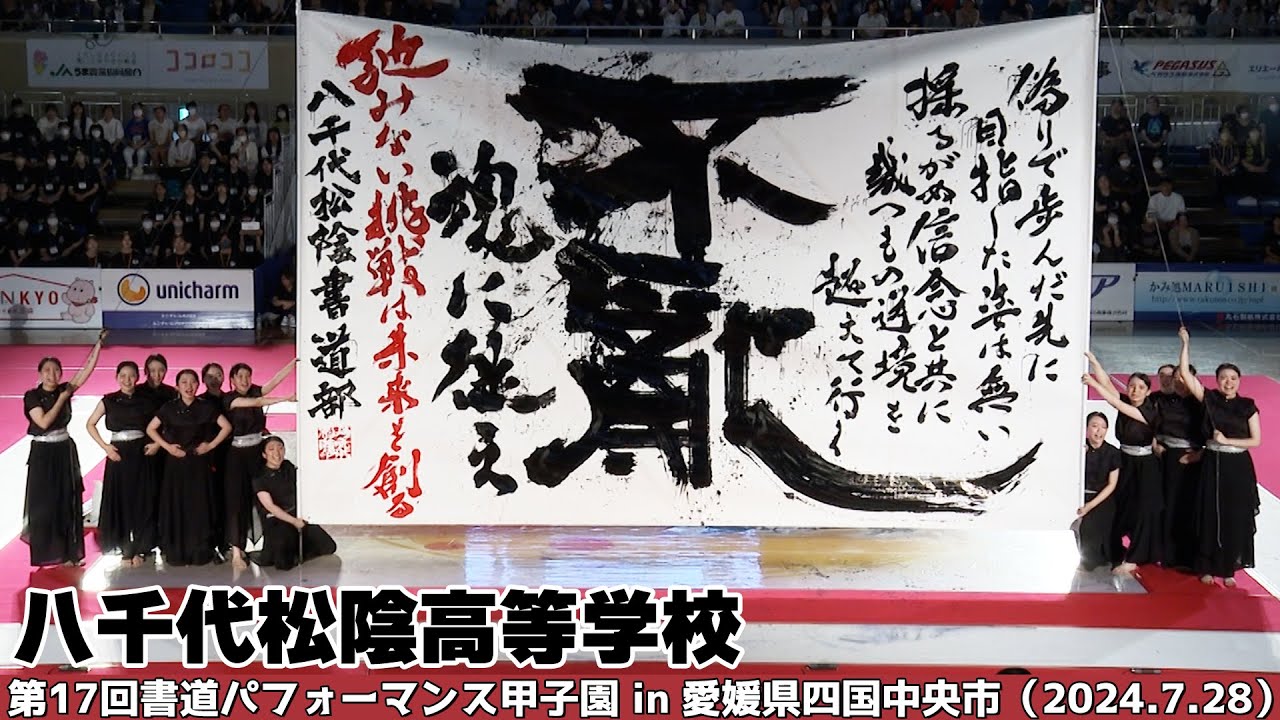 偽りで歩んだ先に
目指した姿は無い
揺るがぬ信念と共に
幾つもの逆境を
越えて行く
不亂
魂に
弛みない挑戦は未来を創る
八千代松陰書道部
ココロココ
PEGASUS
NKYO
unicharm
かみ処MARUISHI
八千代松陰高等学校
第17回書道パフォーマンス甲子園 in 愛媛県四国中央市（2024.7.28）